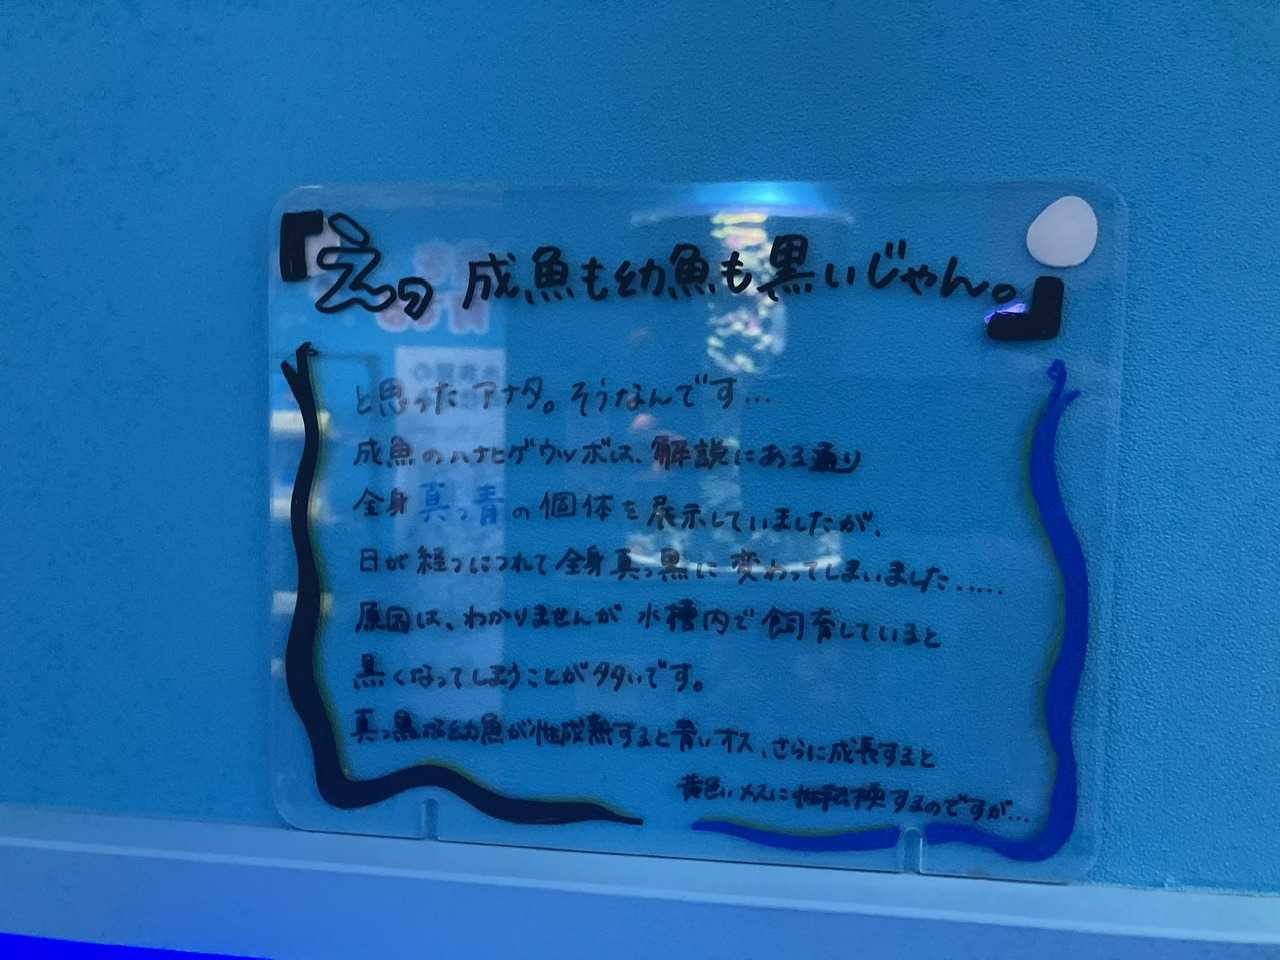 『えっ 成魚も幼魚も黒いじゃん。』
と思ったアナタ。そうなんです…
成魚のハナヒゲウツボは、解説にある通り
全身真っ青の個体を展示していましたが、
日が経つにつれて全身真っ黒に変わってしまいました……
原因は、わかりませんが水槽内で飼育していると
黒くなってしまうことが多いです。
真っ黒な幼魚が性成熟すると青いオス、さらに成長すると
黄色いメスに性転換するのですが…